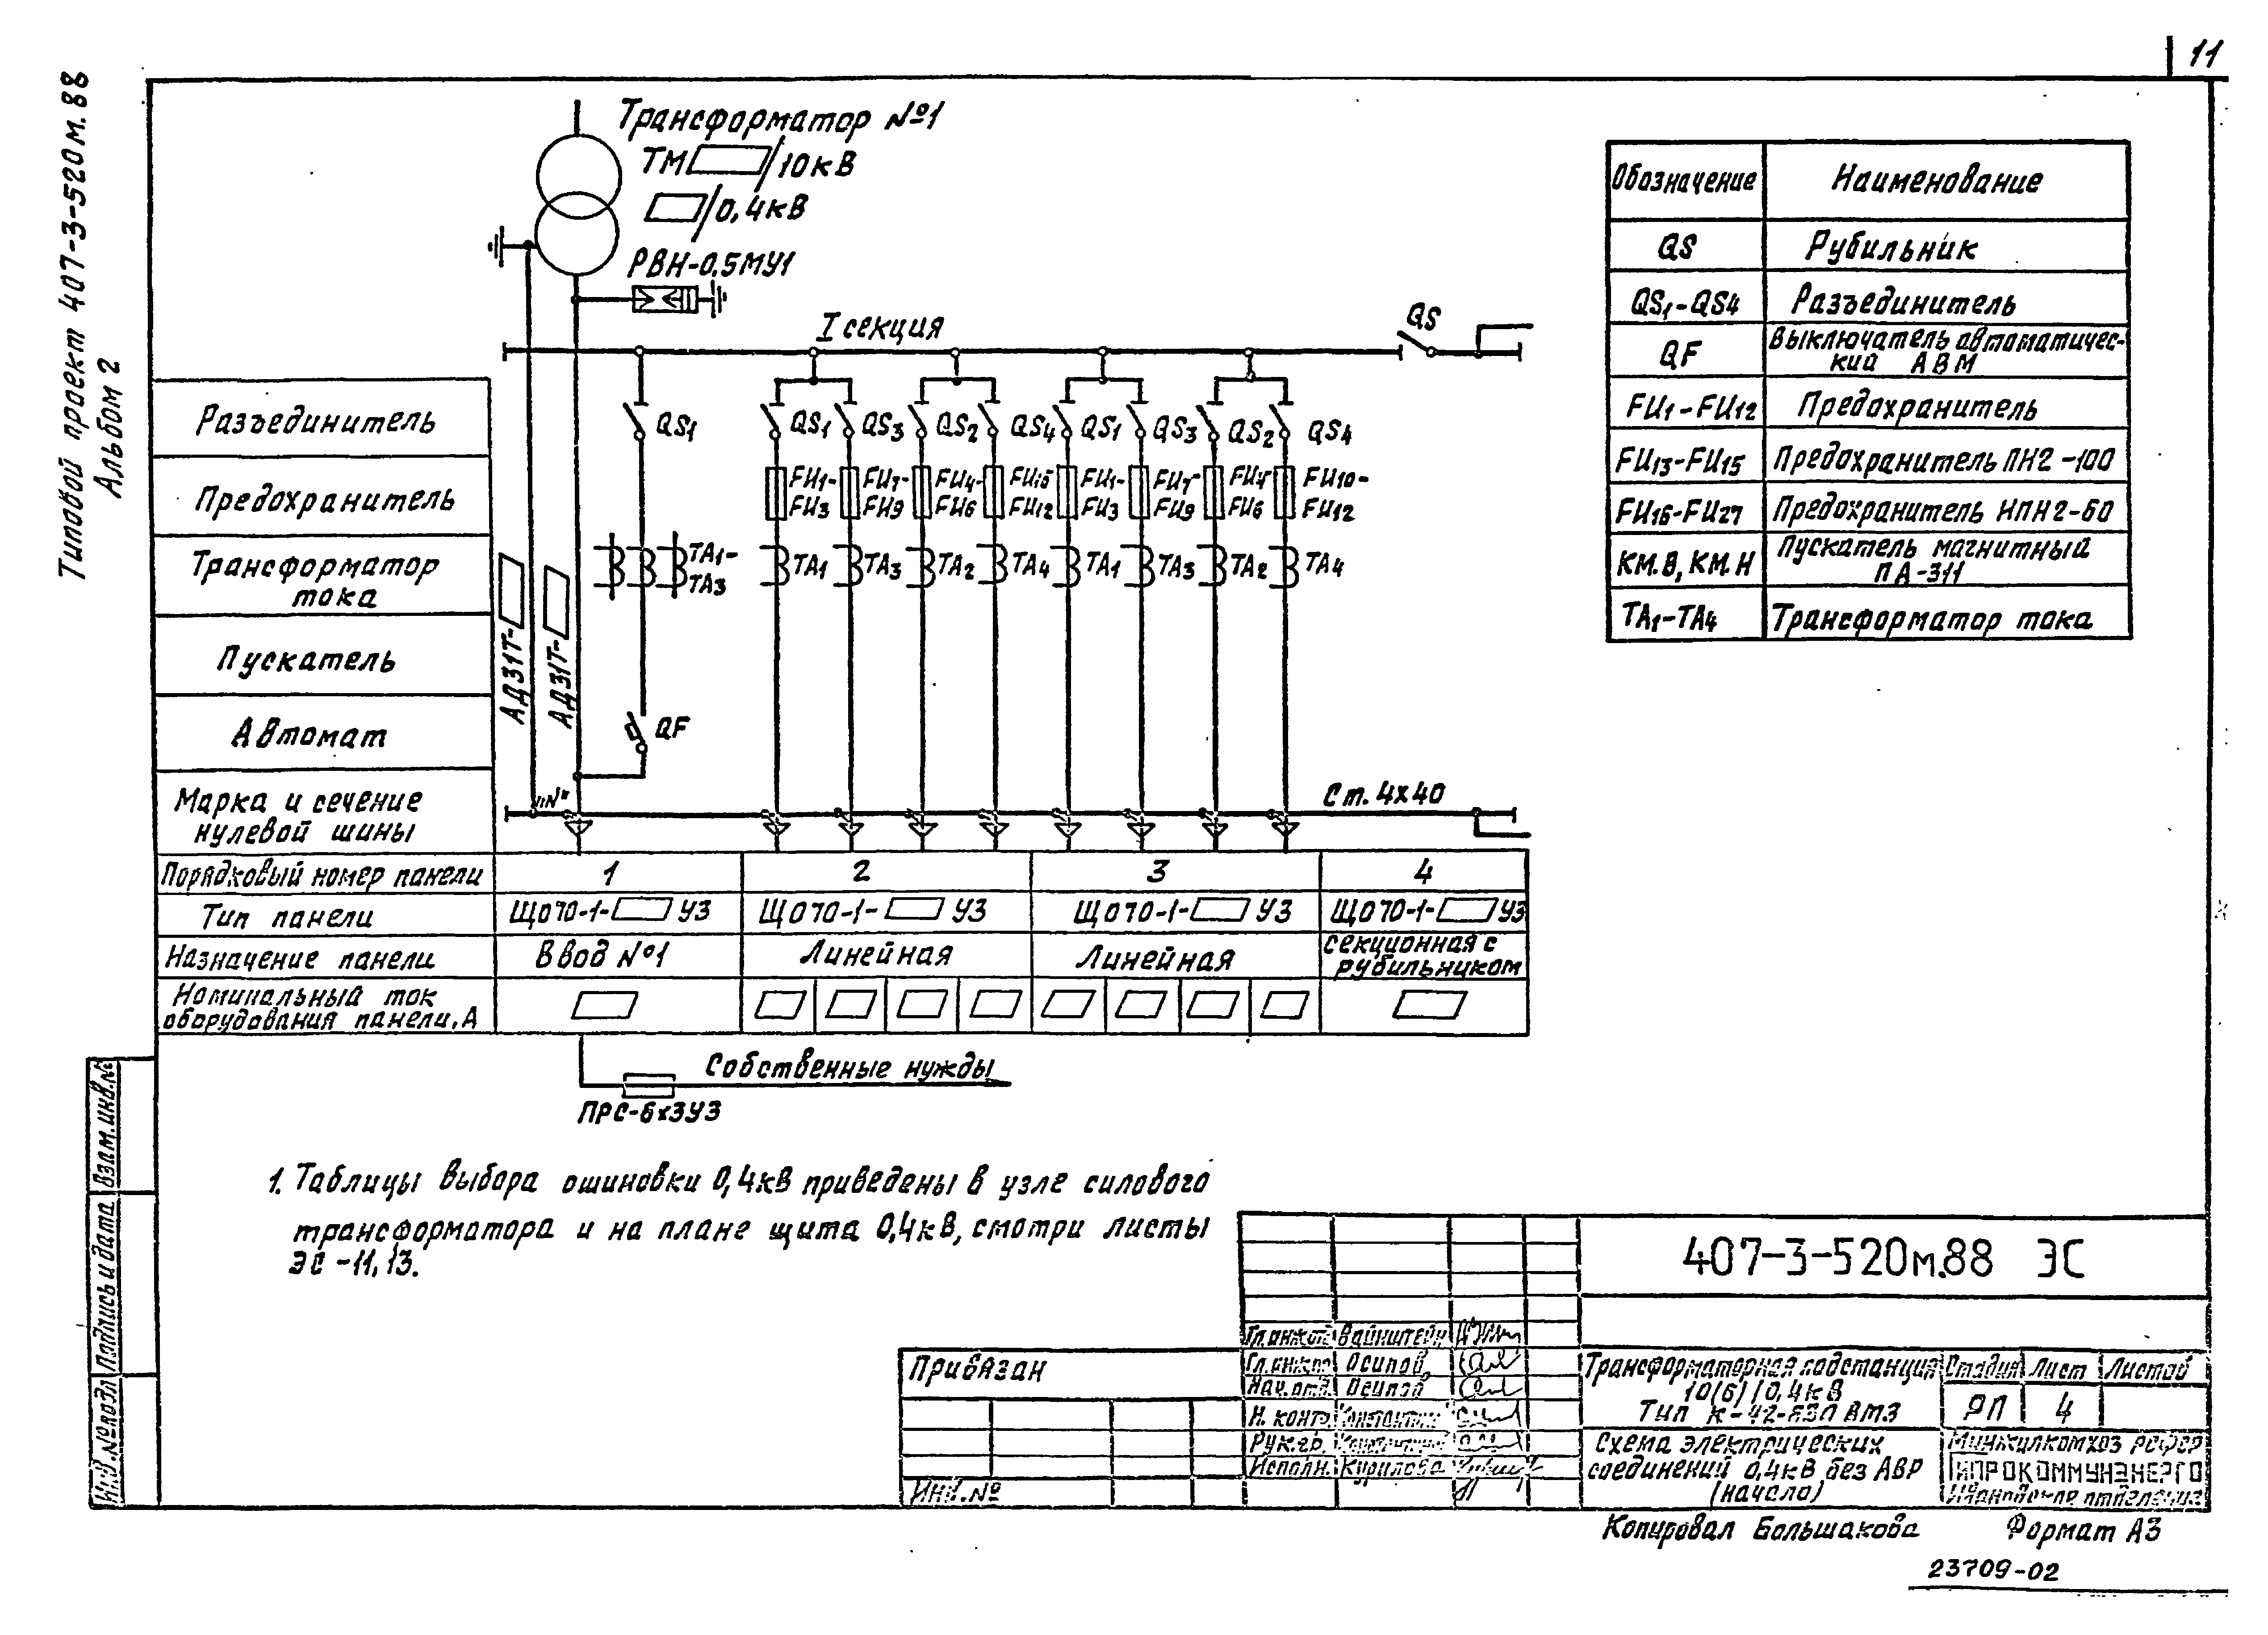 11
Типовой проект 407-3-520м.88
Альбом 2
Трансформатор №1
ТМ /10кВ
/0,4кВ
РВН-0,5МУ1
I секция
QS
Разъединитель
QS1 QS1 QS3 QS2 QS4 QS1 QS3 QS2 QS4
Предохранитель
FU1- FU7- FU4- FU1- FU7- FU4- FU10-
FU3 FU9 FU6 FU12 FU3 FU9 FU6 FU12
Трансформатор
тока
ТА1- ТА1 ТА3 ТА2 ТА4 ТА1 ТА3 ТА2 ТА4
ТА3
Пускатель
АД31Т-
АД31Т-
Автомат
QF
Марка и сечение
нулевой шины
"N"
Ст. 4х40
Порядковый номер панели 1 2 3 4
Тип панели ЩО70-1- У3 ЩО70-1- У3 ЩО70-1- У3 ЩО70-1- У3
Назначение панели Ввод №1 Линейная Линейная секционная с
рубильником
Номинальный ток
оборудования панели, А
Собственные нужды
ПРС-6х3У3
Обозначение Наименование
QS Рубильник
QS1-QS4 Разъединитель
QF Выключатель автоматичес-
кий АВМ
FU1-FU12 Предохранитель
FU13-FU15 Предохранитель ПН2-100
FU16-FU27 Предохранитель НПН2-60
КМ.В, КМ.Н Пускатель магнитный
ПА-311
ТА1-ТА4 Трансформатор тока
1. Таблицы выбора ошиновки 0,4кВ приведены в узле силового
трансформатора и на плане щита 0,4кВ, смотри листы
ЭС-11, 13.
Взам. инв.№
Подпись и дата
Инв.№подл
Привязан
Инв.№
407-3-520м.88 ЭС
Вайнштейн
Гл.инж.пр. Осипов
Нач.отд. Осипов
Н. контр.
Рук.гр.
Исполн. Курилова
Трансформаторная подстанция
10(6)/0,4кВ
Тип
Стадия Лист Листов
РП 4
Схема электрических
соединений 0,4кВ без АВР
(начало)
Минжилкомхоз РСФСР
ГИПРОКОММУНЭНЕРГО
Копировал Большакова Формат А3
23709-02